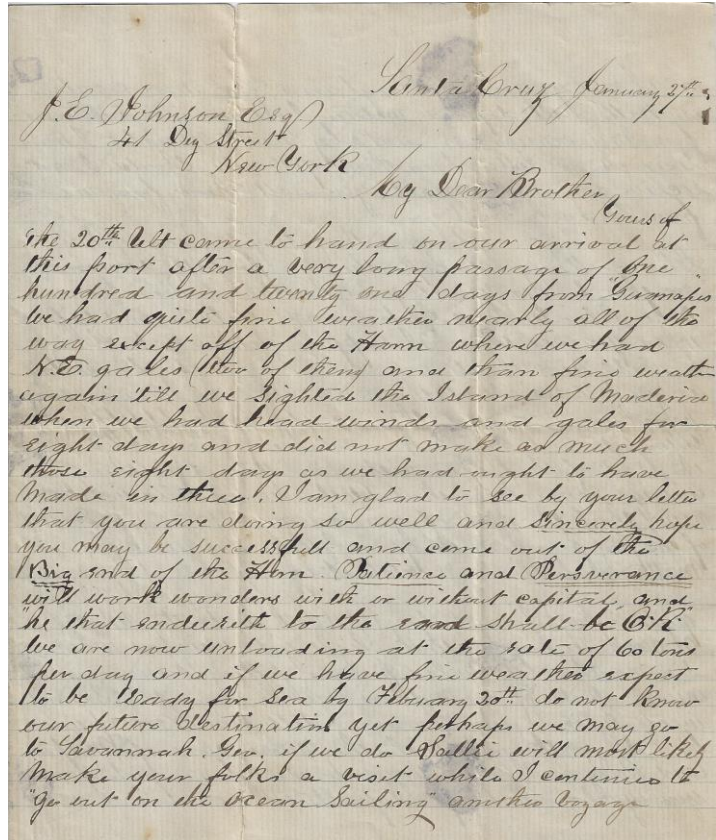 Santa Cruz January 27th
J. E. Johnson Esq
41 Dey Street
New York
My Dear Brother
Yours of
the 20th Ult came to hand on our arrival at
this port after a very long passage of one
hundred and twenty one days from "Guanapes"
We had quite fine weather nearly all of the
way except off of the Horn where we had
N.E. gales (two of them) and than fine weather
again 'till we sighted the Island of Maderia
when we had head winds and gales for
eight days and did not make as much
those eight days as we had ought to have
made in three. I am glad to see by your letter
that you are doing so well and sincerely hope
you may be successfull and come out of the
Big end of the Horn. Patience and Perseverance
will work wonders with or without capital, and
"he that endureth to the end shall be "O.K."
We are now unloading at the rate of 60 tons
per day and if we have fine weather expect
to be ready for sea by Febuary 20th. do not know
our future destination yet perhaps we may go
to Savannah. Geo. if we do Sallie will most likely
make your folks a visit while I continue to
"go out on the ocean Sailing" another voyage